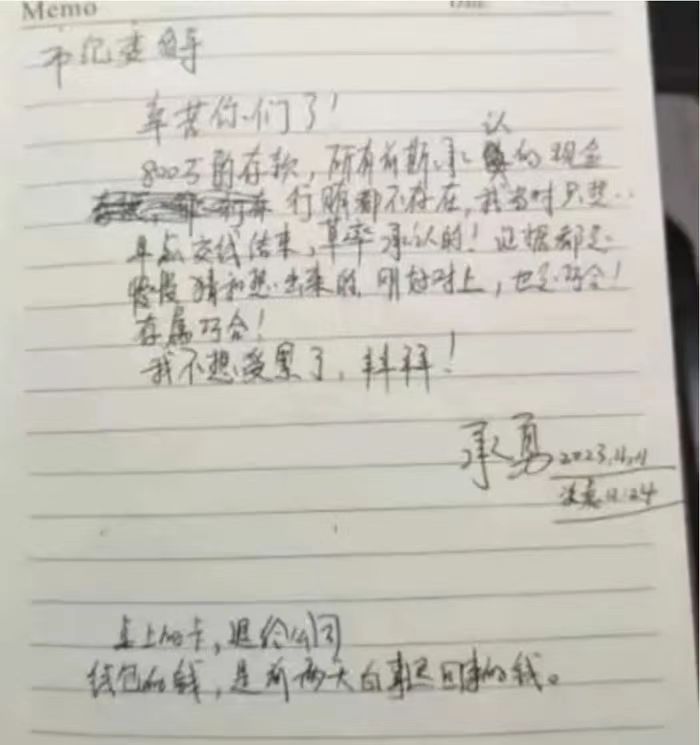 Memo
市纪委领导
辛苦你们了！
认
800万的存款，所有前期承的现金
行贿都不存在，我当时只想
早点交线结束，草率承认的！证据都是
猜和想出来的，刚好对上，也是巧合！
存属巧合！
我不想受累了，拜拜！
承勇 2023.11.11
凌晨
桌上的卡，退给公司
钱包的钱，是前两天白事退回来的钱。